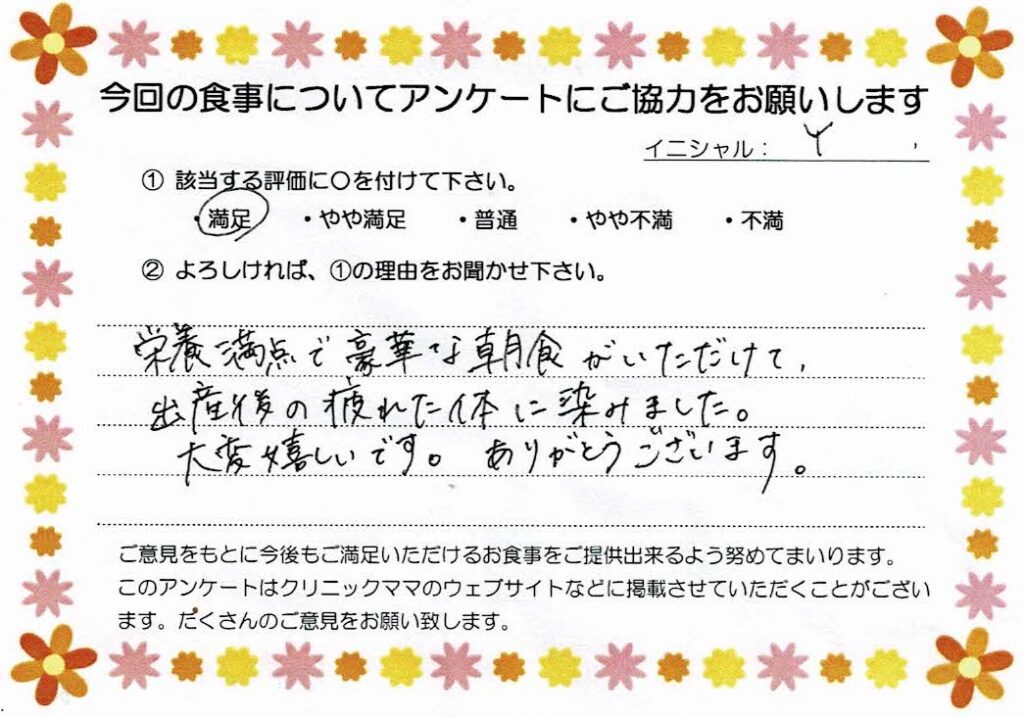 今回の食事についてアンケートにご協力をお願いします
イニシャル： Y
① 該当する評価に〇を付けて下さい。
・満足 ・やや満足 ・普通 ・やや不満 ・不満
② よろしければ、①の理由をお聞かせ下さい。
栄養満点で豪華な朝食がいただけて、
出産後の疲れた体に染みました。
大変嬉しいです。ありがとうございます。
ご意見をもとに今後もご満足いただけるお食事をご提供出来るよう努めてまいります。
このアンケートはクリニックママのウェブサイトなどに掲載させていただくことがござい
ます。たくさんのご意見をお願い致します。